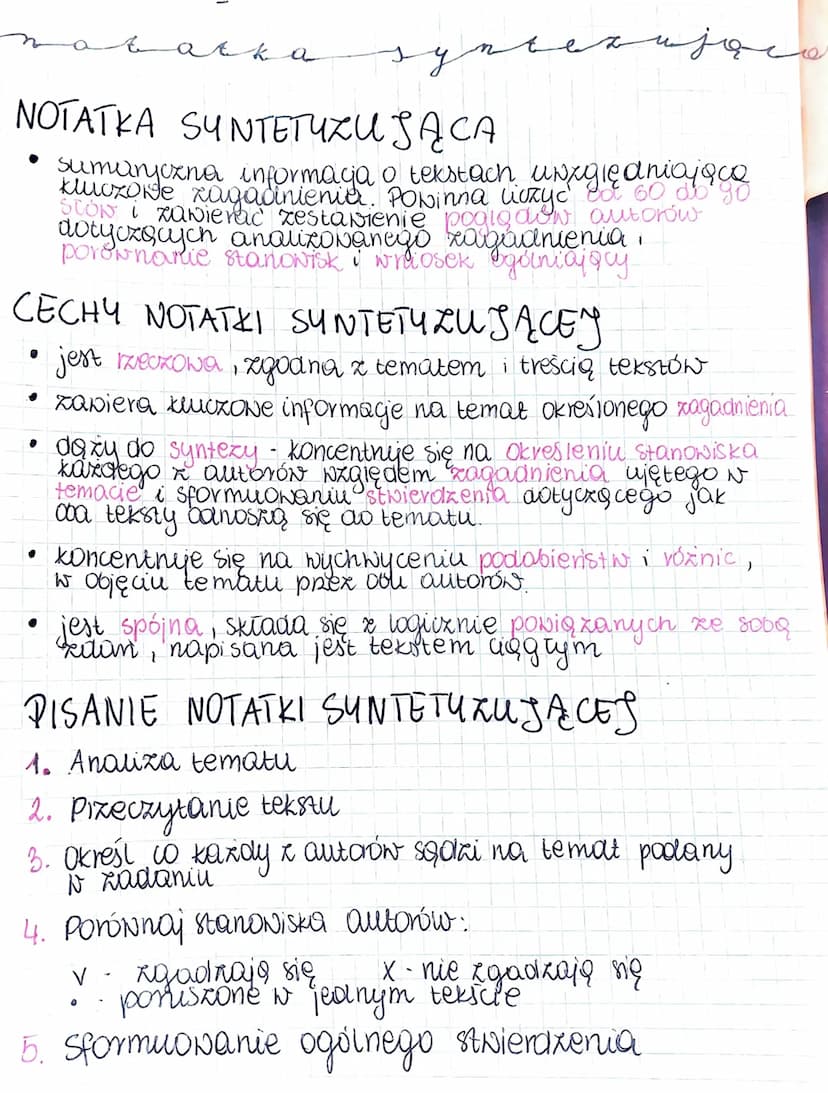 notatka syntezująca
NOTATKA SYNTETYZUJĄCA
• sumaryczna informacja o tekstach uwzględniająca
kluczowe zagadnienia. Powinna liczyć od 60 do 90
słów i zawierać zestawienie poglądów autorów
dotyczących analizowanego zagadnienia,
porównanie stanowisk i wniosek ogólniający
CECHY NOTATKI SYNTETYZUJĄCEJ
• jest rzeczowa, zgodna z tematem i treścią tekstów
• zawiera kluczowe informacje na temat określonego zagadnienia
• dąży do syntezy - koncentruje się na określeniu stanowiska
każdego z autorów względem zagadnienia ujętego w
temacie i sformuowaniu stwierdzenia dotyczącego jak
oba teksty odnoszą się do tematu.
• koncentruje się na wychwyceniu podobieństw i różnic,
w objęciu tematu przez obu autorów.
• jest spójna, składa się z logicznie powiązanych ze sobą
zdań, napisana jest tekstem ciągłym
PISANIE NOTATKI SYNTETYZUJĄCEJ
1. Analiza tematu
2. Przeczytanie tekstu
3. Określ co każdy z autorów sądzi na temat podany
w zadaniu
4. Porównaj stanowiska autorów:
v - zgadzają się x - nie zgadzają się
• - poruszone w jednym tekście
5. Sformuowanie ogólnego stwierdzenia